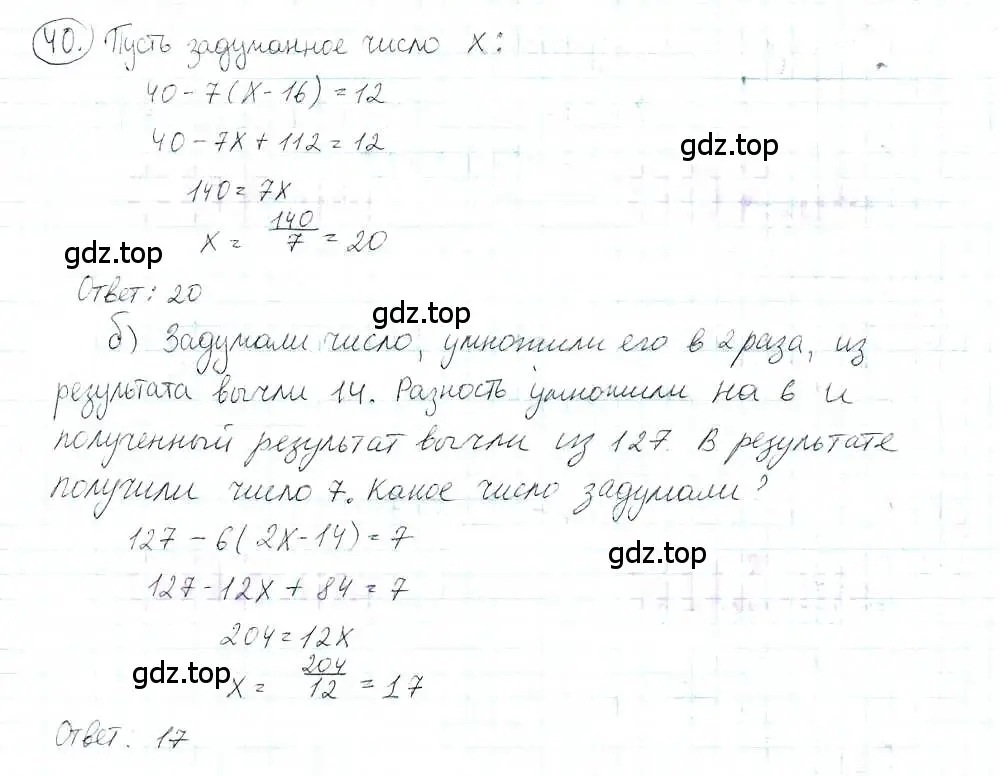 40. Пусть задуманное число x:
40 - 7(x - 16) = 12
40 - 7x + 112 = 12
gdz.top
140 = 7x
x = 140/7 = 20
gdz.top
Ответ: 20
gdz.top
б) Задумали число, умножили его в 2 раза, из
результата вычли 14. Разность умножили на 6 и
полученный результат вычли из 127. В результате
получили число 7. Какое число задумали?
127 - 6(2x - 14) = 7
gdz.top
127 - 12x + 84 = 7
204 = 12x
gdz.top
x = 204/12 = 17
Ответ: 17